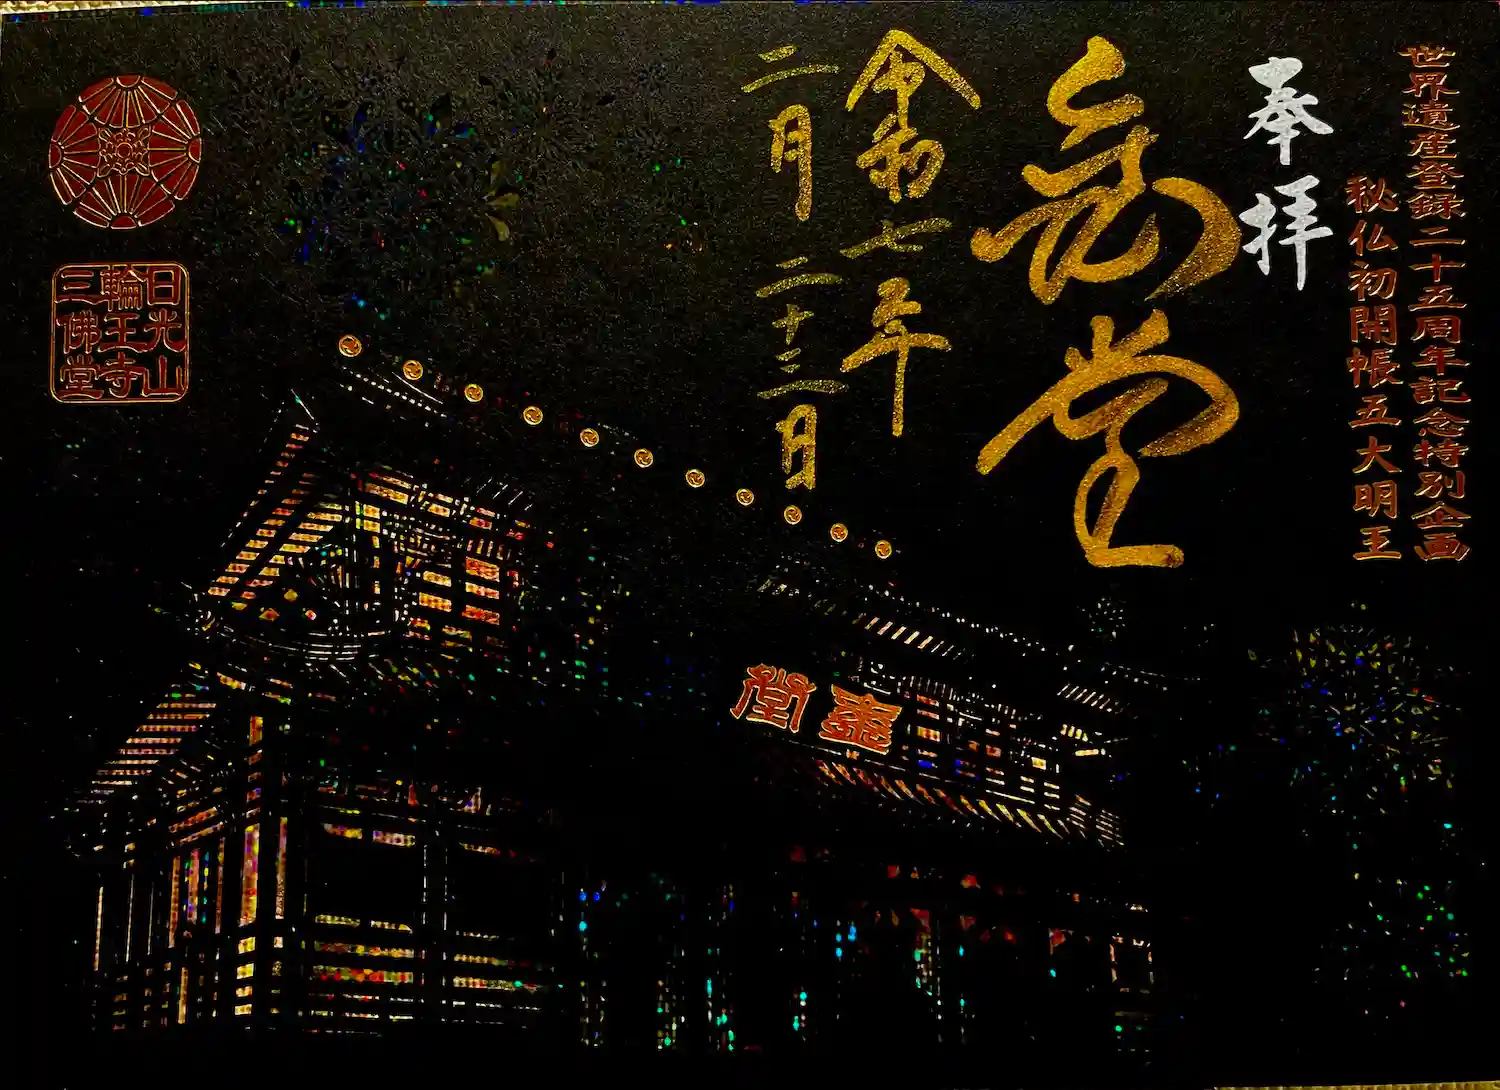 世界遺産登録二十五周年記念特別企画
秘仏初開帳五大明王
奉拝
堂
令和七年
二月二十三日
日光山
輪王寺
三佛堂
堂